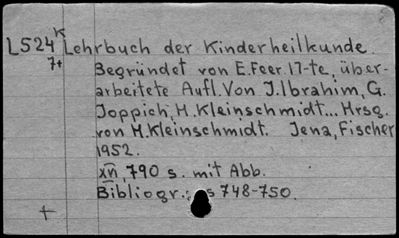 L524 K Lehrbuch der Kinderheilkunde.
7+ Begründet von E.Feer 17-te, über-
arbeitete Aufl. Von J.Ibrahim, G.
Joppich, H.Kleinschmidt... Hrsg.
von H.Kleinschmidt. Jena, Fischer
1952.
XII, 790 s. mit Abb.
Bibliogr.: s 748-750.
+